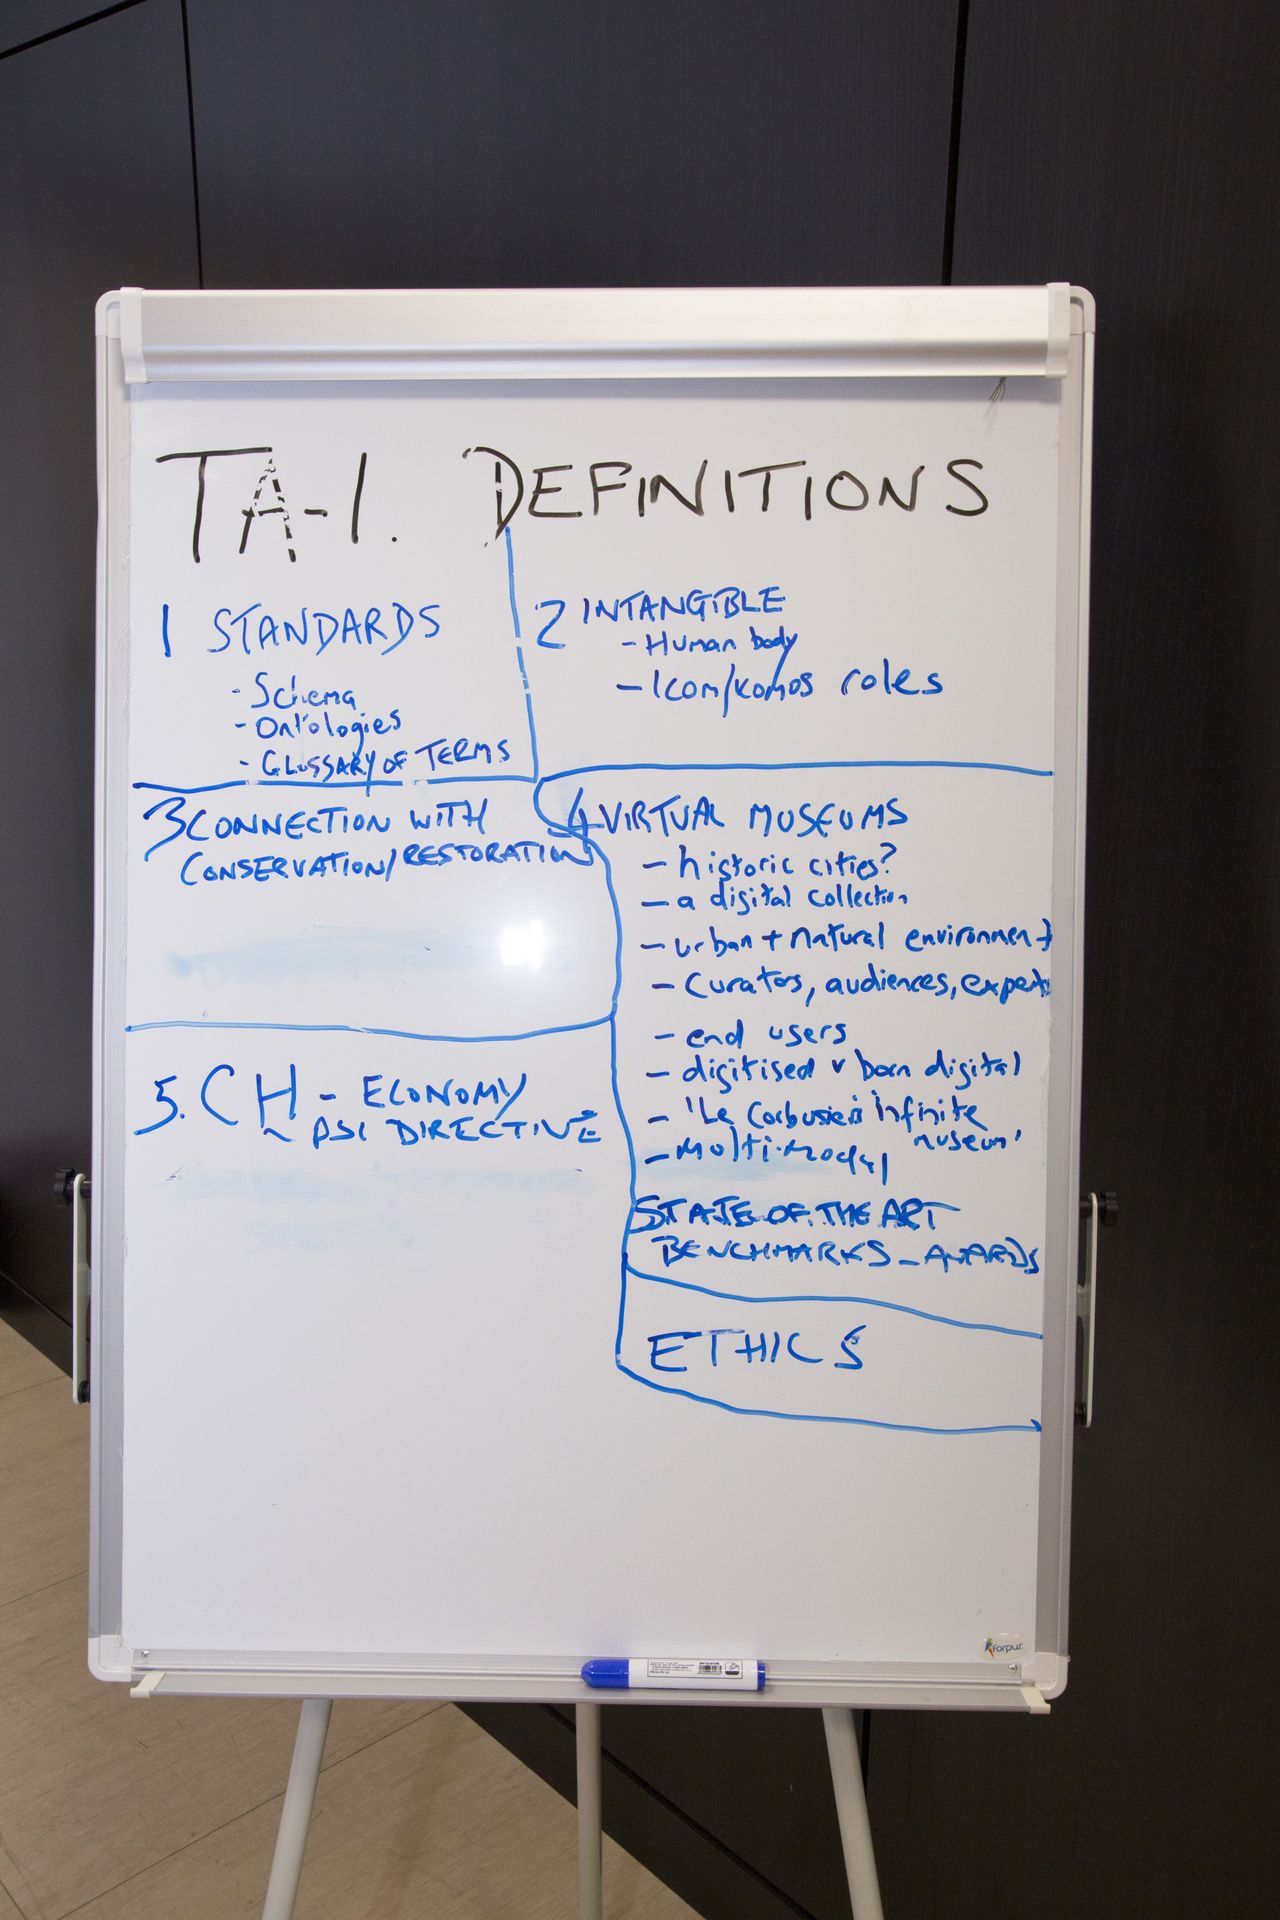 TA-1. DEFINITIONS
1 STANDARDS
- Schema
- Ontologies
- GLOSSARY OF TERMS
2 INTANGIBLE
- Human body
- Icom/komos roles
3 CONNECTION WITH
CONSERVATION/RESTORATION
4 VIRTUAL MUSEUMS
- historic cities?
- a digital collection
- urban + natural environment
- Curators, audiences, experts
- end users
- digitised v born digital
- 'Le Corbusier's infinite
museum'
- Multi-modal
STATE OF THE ART
BENCHMARKS - AWARDS
5. CH - ECONOMY
- PSI DIRECTIVE
ETHICS
forpus